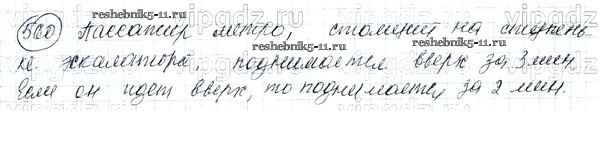 reshebnik5-11.ru
560 Пассажир метро, стоящий на ступень
ке эскалатора поднимается вверх за 3 мин.
reshebnik5-11.ru
Если он идет вверх, то поднимается за 2 мин.
reshebnik5-11.ru